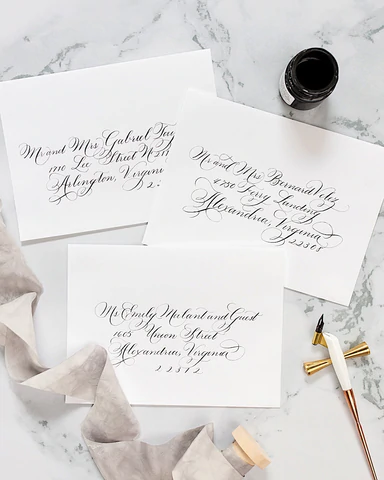 Mr and Mrs Gabriel
1710 Lee Street
Arlington, Virgini
2
Mr and Mrs Bernard Velez
4730 Ferry Landing
Alexandria, Virginia
22303
Ms Emily Mulant and Guest
1605 Union Street
Alexandria, Virginia
22312